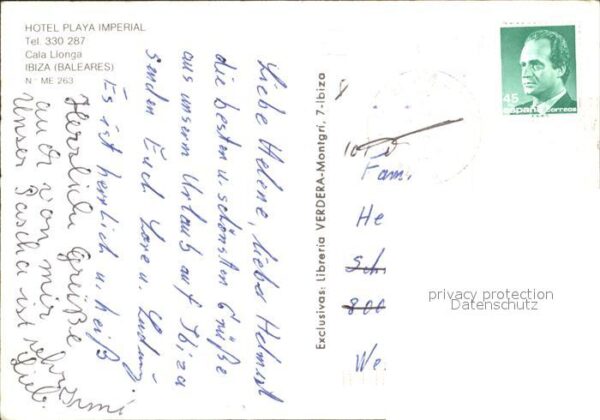 HOTEL PLAYA IMPERIAL
Tel. 330 287
Cala Llonga
IBIZA (BALEARES)
N° ME 263
Liebe Helene, lieber Helmut
die besten u. schönsten Grüße
aus unserm Urlaub auf Ibiza
senden Euch Lore u. Ludwig
Es ist herrlich u. heiß
Herzliche Grüße
auch von mir
Unser Pascha ist sehr
lieb.
Exclusivas: Libreria VERDERA-Montgrí, 7-Ibiza
45
españa correos
Fam.
He
Sch
800
We
privacy protection
Datenschutz